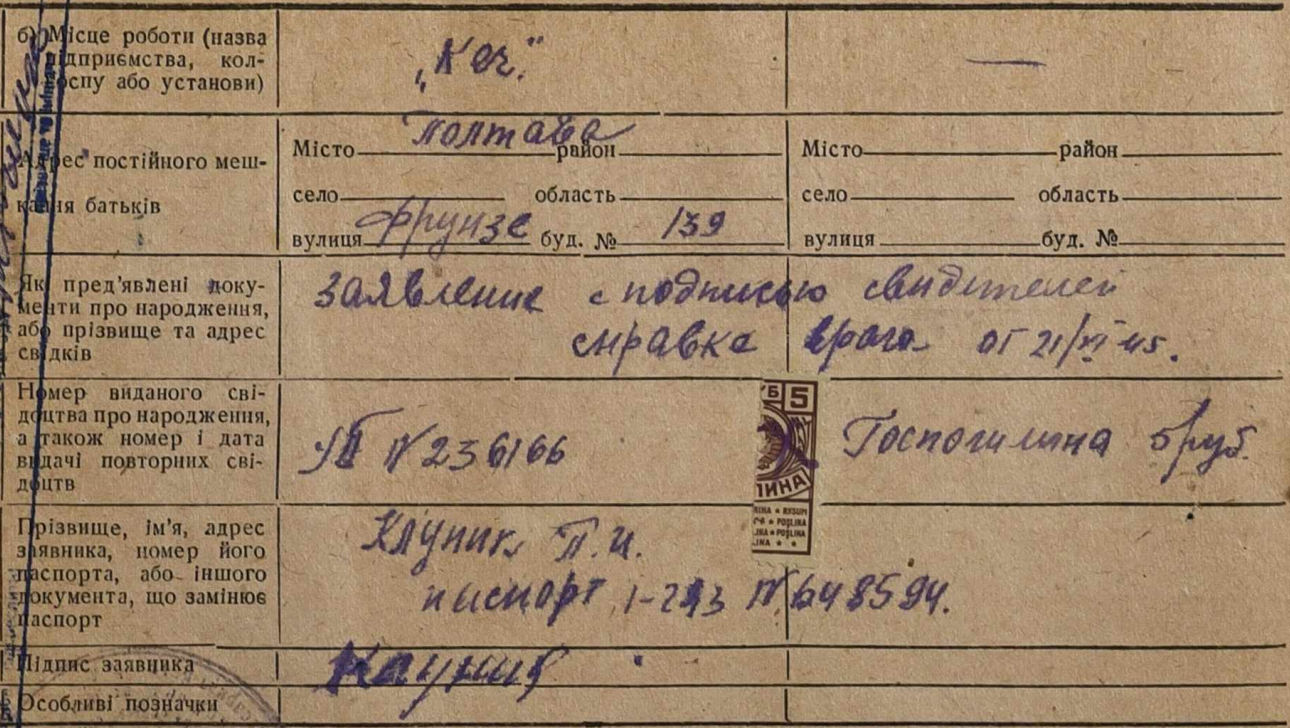 б) Місце роботи (назва підприємства, колгоспу або установи)
„Кеч."
—
Адрес постійного мешкання батьків
Місто Полтава район
село область
вулиця Фрунзе буд. № 139
Місто район
село область
вулиця буд. №
Які пред'явлені документи про народження, або прізвище та адрес свідків
Заявление с подписью свидетелей
справка врача от 21/XI 45.
Номер виданого свідоцтва про народження, а також номер і дата видачі повторних свідоцтв
N 236166
УБ 5
ЛИНА
Госпошлина 5 руб.
Прізвище, ім'я, адрес заявника, номер його паспорта, або іншого документа, що замінює паспорт
П. И.
паспорт N 648594.
Підпис заявника
Особливі позначки